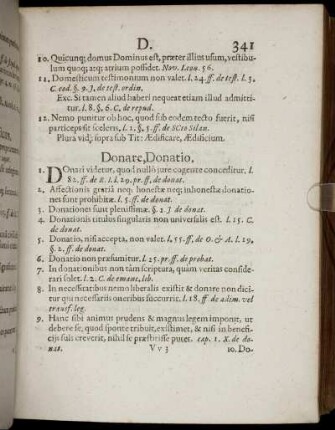 D. 341
10. Quicunq; domus Dominus est, præter illius usum, vestibu-
lum quoq; atq; atrium possidet. Nov. Leon. 56.
11. Domesticum testimonium non valet. l. 24. ff. de test. l. 3.
C. eod. §. 9. J. de test. ordin.
Exc. Si tamen aliud haberi nequeat etiam illud admitti-
tur. l. 8. §. 6. C. de repud.
12. Nemo punitur ob hoc, quod sub eodem tecto fuerit, nisi
particeps sit sceleris. l. 1. §. 5. ff. de SCto Silan.
Plura vid; supra sub Tit: Ædificare, Ædificium.
Donare, Donatio.
1. DOnari videtur, quod nullo jure cogente conceditur. l.
82. ff. de R. J. l. 29. pr. ff. de donat.
2. Affectionis gratia neq; honestæ neq; inhonestæ donatio-
nes sunt prohibitæ. l. 5. ff. de donat.
3. Donationes sunt plenissimæ. §. 2. J de donat.
4. Donationis titulus singularis non universalis est. l. 15. C.
de donat.
5. Donatio, nisi accepta, non valet. l. 55. ff. de O. & A. l. 19.
§. 2. ff. de donat.
6. Donatio non præsumitur. l. 25. pr. ff. de probat.
7. In donationibus non tàm scriptura, quàm veritas conside-
rari solet. l. 2. C. de emanc. lib.
8. In necessitatibus nemo liberalis existit & donare non dici-
tur qui necessariis oneribus succurrit. l. 18. ff. de adim. vel
transf. leg.
9. Hanc sibi animus prudens & magnus legem imponit, ut
debere se, quod sponte tribuit, existimet, & nisi in benefi-
cijs suis creverit, nihil se præstitisse putet. cap. 1. X. de do-
nat.
V v 3 10. Do-